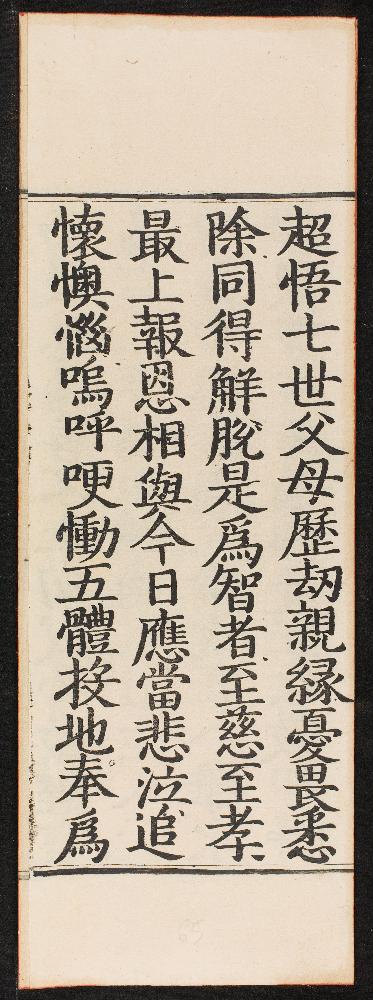 超悟七世父母歷劫親緣憂畏悉
除同得觧脫是為智者至慈至孝
最上報恩相與今日應當悲泣追
懷懊惱嗚呼哽慟五體投地奉為